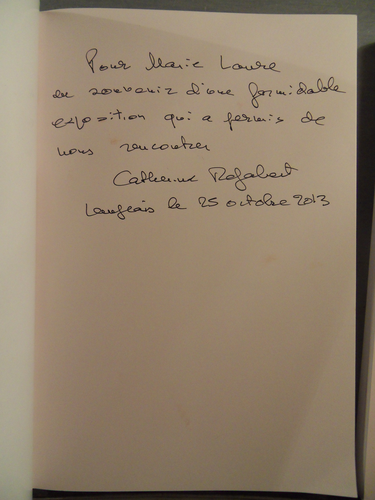 Pour Marie Laure
en souvenir d'une formidable
exposition qui a permis de
nous rencontrer
Catherine
Langeais le 25 octobre 2013